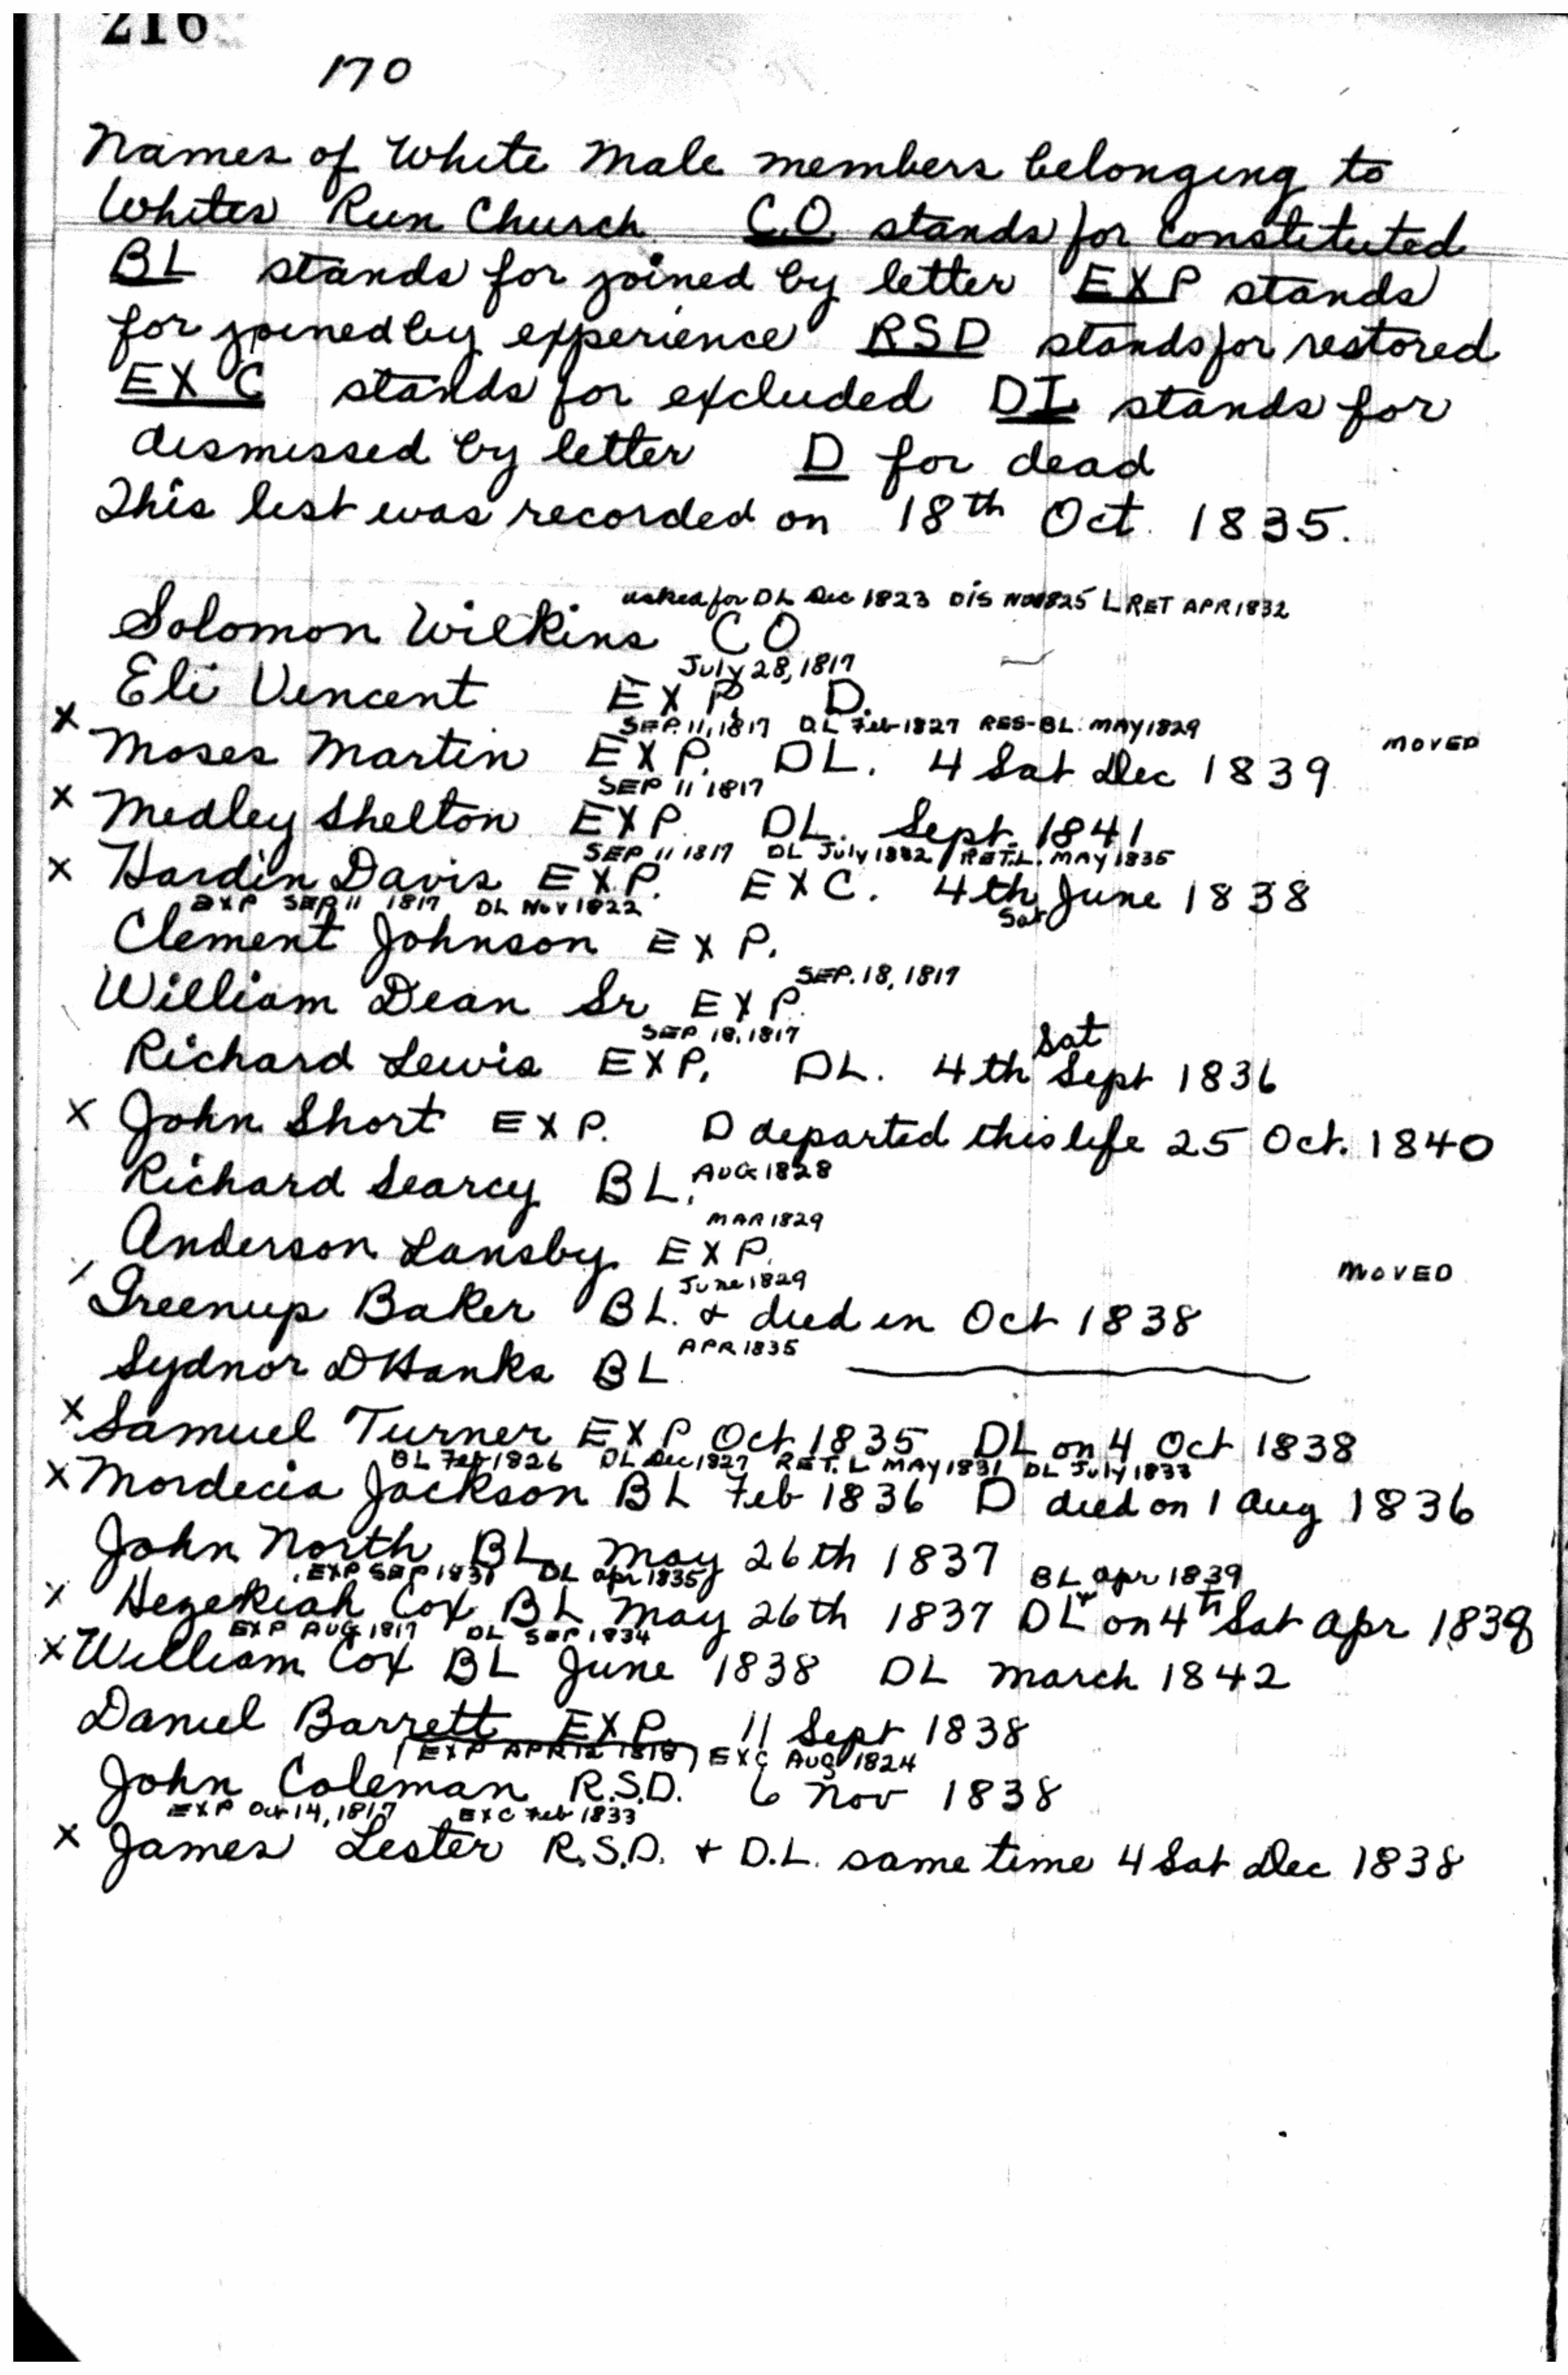 216
170
Names of White Male members belonging to
Whites Run Church. C.O. stands for constituted
BL stands for joined by letter EXP stands
for joined by experience RSD stands for restored
EXC stands for excluded DI stands for
dismissed by letter D for dead
This list was recorded on 18th Oct. 1835.
asked for DL Dec 1823 DIS NOV1825 L RET APR 1832
Solomon Wilkins CO
July 28, 1817
Eli Vencent EXP. D.
SEP. 11, 1817 DL Feb 1827 RES-BL. MAY 1829
X Moses Martin EXP. DL. 4 Sat Dec 1839 MOVED
SEP 11 1817
X Medley Shelton EXP. DL. Sept. 1841
SEP 11 1817 DL July 1832 / RET.L. MAY 1835
X Hardin Davis EXP. EXC. 4th Sat June 1838
EXP SEP 11 1817 DL Nov 1822
Clement Johnson EXP.
SEP. 18, 1817
William Dean Sr EXP.
SEP 18, 1817
Richard Lewis EXP. DL. 4th Sat Sept 1836
X John Short EXP. D departed this life 25 Oct. 1840
Richard Searcy BL. AUG 1828
MAR 1829
Anderson Lansby EXP.
June 1829 MOVED
Greenup Baker BL. & died in Oct 1838
APR 1835
Sydnor D Hanks BL
X Samuel Turner EXP Oct 1835 DL on 4 Oct 1838
BL Feb 1826 DL Dec 1827 RET. L MAY 1831 DL July 1833
X Mordecia Jackson BL Feb 1836 D died on 1 Aug 1836
John North BL May 26th 1837
EXP SEP 1831 DL apr 1835 BL apr 1839
X Hezekiah Cox BL May 26th 1837 DL on 4th Sat Apr 1838
EXP AUG 1817 DL SEP 1834
X William Cox BL June 1838 DL March 1842
Daniel Barrett EXP 11 Sept 1838
(EXP APR 12 1818) EXC AUG 1824
John Coleman R.S.D. 6 Nov 1838
EXP Oct 14, 1817 EXC Feb 1833
X James Lester R.S.D. + D.L. same time 4 Sat Dec 1838